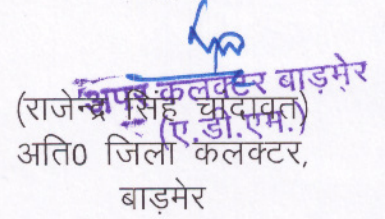 अपर कलक्टर बाड़मेर
(राजेन्द्र सिंह चांदावत)
(ए.डी.एम.)
अति0 जिला कलक्टर,
बाड़मेर